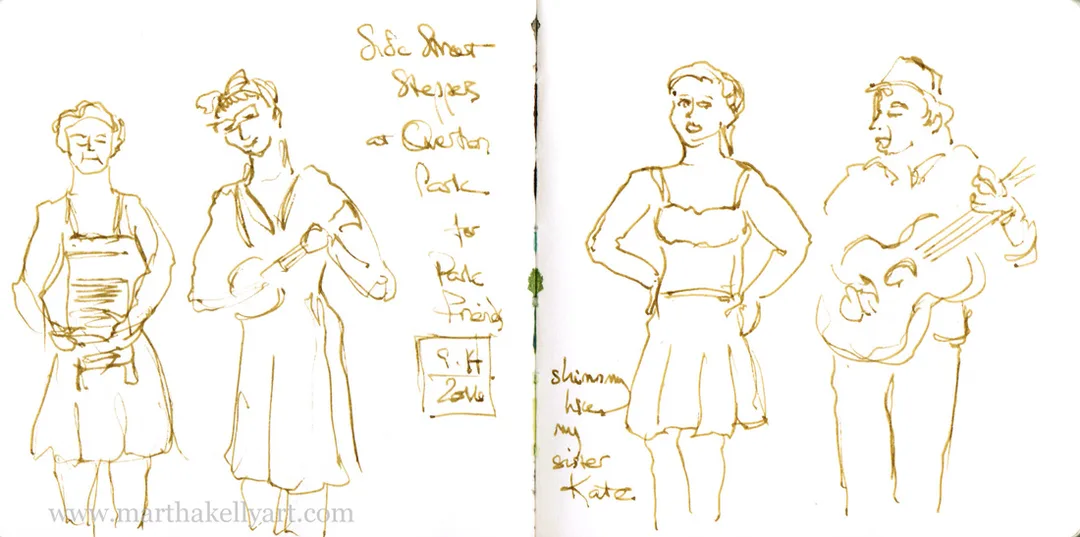 Side Street
Steppers
at Overton
Park
for
Park
Friends
9.14
2016
shimmy
like
my
sister
Kate
www.marthakellyart.com